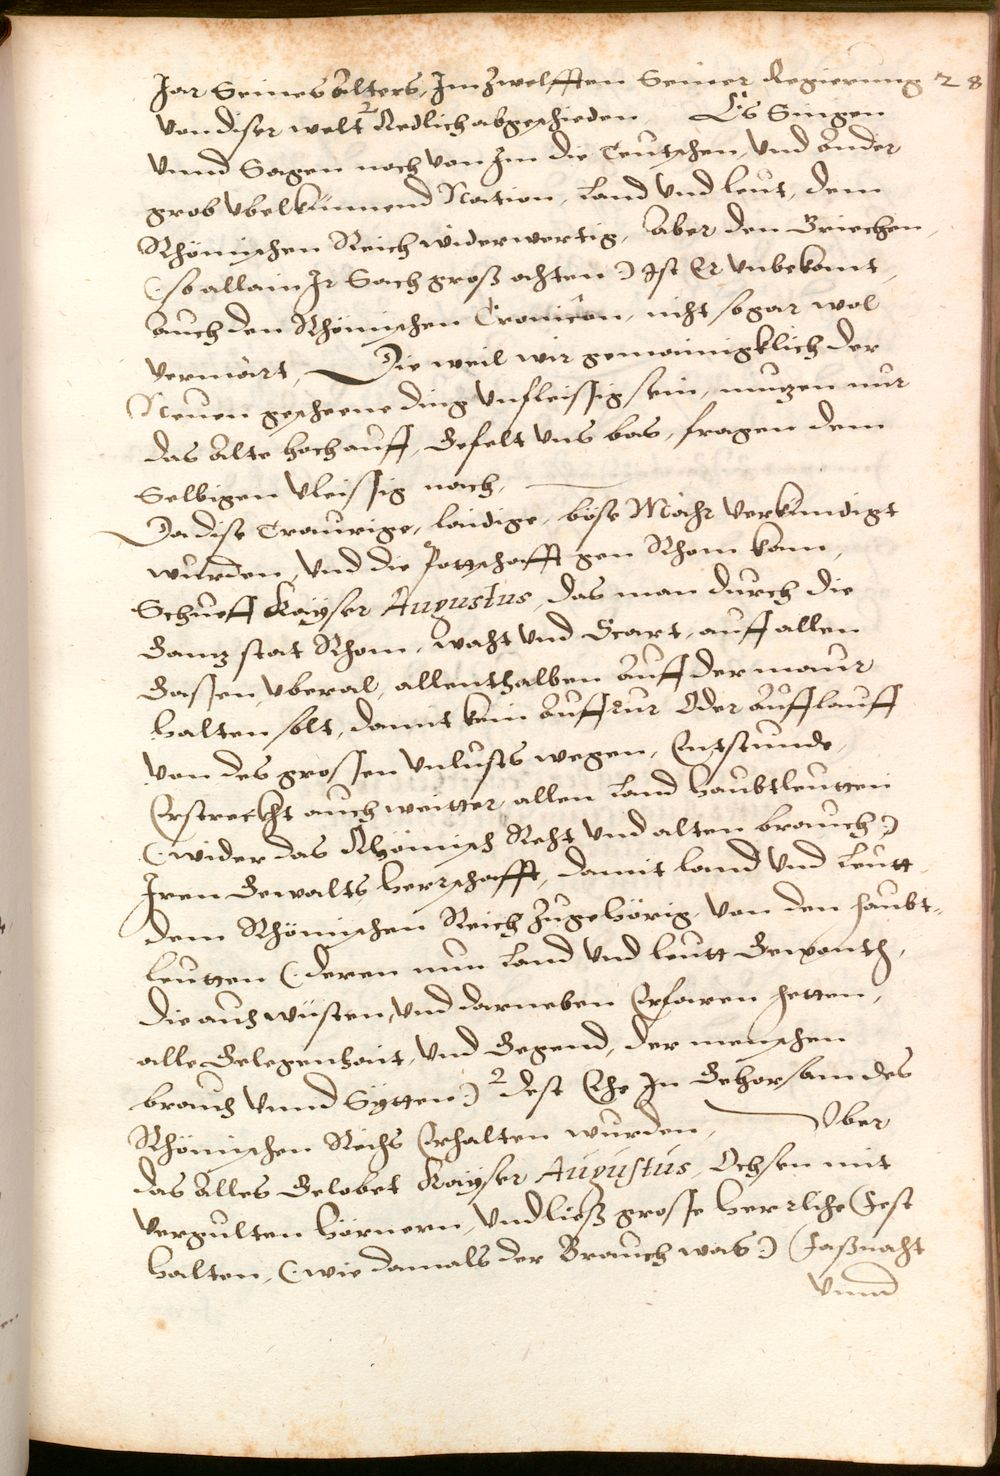 Jar Seines alters, Im zwelfften Seiner Regierung 28
von diser welt Redlich abgeschieden, Es Singen
vnnd Sagen noch von Im die Teutschen, vnd ander
grob vbelkünnend Nation, Land vnd leut, dem
Rhömischen Reich widerwertig, Aber den Griechen,
(: so allain Ir Sach groß achten :) Ist Er vnbekant,
Auch den Rhömischen Cronicen, nicht sogar wol
vermärt, Die weil wir gemainigklich der
Neuen geschecne ding vnfleissig sein, mutzen nur
das Alte hoch auff, Gefelt vns bas, fragen dem
Selbigen vleissig nach,
Da dise Traurige, laidige, böse Mähr verkündigt
wurden, vnd die Pottschafft gen Rhom kam,
Schueff Kayser Augustus, das man durch die
Gantz stat Rhom, wacht vnd Scart, auff allen
Gassen, vberal, allenthalben auff der maur
halten solt, damit kein auffrur Oder aufflauff
von des grossen vnlusts wegen, Entstunde,
Erstreckht auch weitter allen Land haubtleutten
(: wider das Rhömisch Recht vnd alten brauch :)
Iren Gewalts herrschafft, damit land vnd Leutt,
dem Rhömischen Reich zugehörig, von den haubt-
leutten (: deren nun Land vnd leutt Gewonth,
die auch wüsten, vnd darneben Erfaren hetten,
alle Gelegenhait, vnd Gegend, der menschen
brauch vnnd Sytten :) dest Ehe In Gehorsam des
Rhömischen Reichs Erhalten wurden, Vber
das Alles Gelobet Kayser Augustus, Ochsen mit
vergulten hörnern, vnd ließ grosse herrliche Fest
halten, (: wie damals der Brauch was :) Faßnacht
vnnd